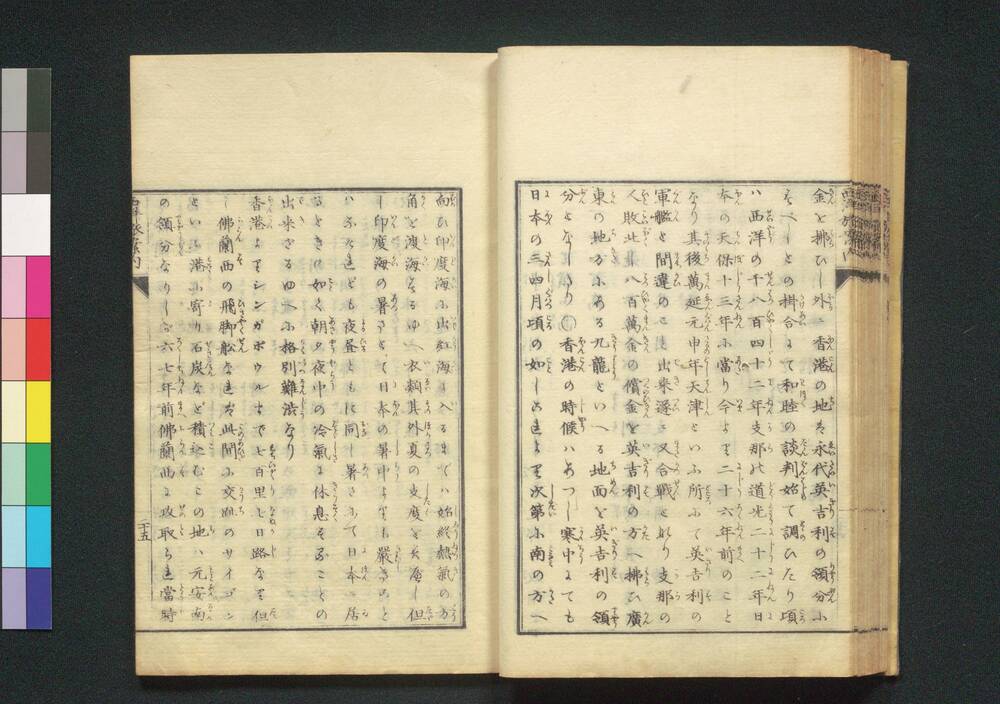 金を拂ひし外ニ香港の地は永代英吉利の領分に
すべしとの掛合にて和睦の談判始て調ひたり頃
ハ西洋の千八百四十二年支那の道光二十二年日
本の天保十三年に當り今より二十六年前のこと
なり其後萬延元申年天津といふ所にて英吉利の
軍艦と間違のこと出来遂に又合戰と成り支那の
人敗北し八百萬金の償金を英吉利の方へ拂ひ廣
東の地方にある九龍といへる地面を英吉利の領
分となしたり○香港の時候ハあつし寒中にても
日本の三四月頃の如しこれより次第に南の方へ
向ひ印度海に出紅海に入るまでハ始終熱氣の方
角を渡海するゆへ衣類其外夏の支度を用意すべし但
し印度海の暑さとて日本の暑中よりも嚴きこと
ハなけれども夜昼ともに同し暑さにて日本に居
るときの如く朝夕夜中の冷氣に休息することの
出来ざるゆゑに格別難渋なり
香港よりシンガポウルまで七百里七日路なり但
し佛蘭西の飛脚舩なれば此間に交趾のサイゴン
といふ港に寄り石炭など積込むこの地ハ元安南
の領分なりしが六七年前佛蘭西に攻取られ當時
西洋旅案内
二十五